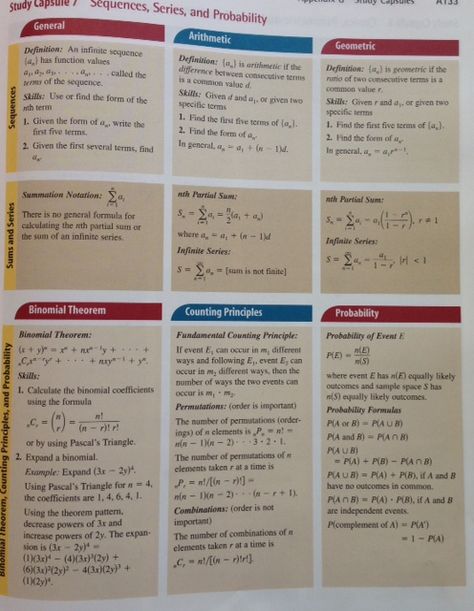 Study Capsule 7 Sequences, Series, and Probability
Study Capsules A133
General
Sequences
Definition: An infinite sequence
{aₙ} has function values
a₁, a₂, a₃, . . . , aₙ, . . . called the
terms of the sequence.
Skills: Use or find the form of the
nth term
1. Given the form of aₙ, write the
first five terms.
2. Given the first several terms, find
aₙ.
Arithmetic
Definition: {aₙ} is arithmetic if the
difference between consecutive terms
is a common value d.
Skills: Given d and a₁, or given two
specific terms
1. Find the first five terms of {aₙ}.
2. Find the form of aₙ.
In general, aₙ = a₁ + (n − 1)d.
Geometric
Definition: {aₙ} is geometric if the
ratio of two consecutive terms is a
common value r.
Skills: Given r and a₁, or given two
specific terms
1. Find the first five terms of {aₙ}.
2. Find the form of aₙ.
In general, aₙ = a₁rⁿ⁻¹.
Sums and Series
Summation Notation: Σ aᵢ
There is no general formula for
calculating the nth partial sum or
the sum of an infinite series.
nth Partial Sum:
Sₙ = Σ aᵢ = n/2(a₁ + aₙ)
where aₙ = a₁ + (n − 1)d
Infinite Series:
S = Σ aₙ = [sum is not finite]
nth Partial Sum:
Sₙ = Σ aᵢ = a₁((1 − rⁿ)/(1 − r)), r ≠ 1
Infinite Series:
S = Σ aₙ = a₁/(1 − r), |r| < 1
Binomial Theorem, Counting Principles, and Probability
Binomial Theorem
Binomial Theorem:
(x + y)ⁿ = xⁿ + nxⁿ⁻¹y + · · · +
ₙCᵣxⁿ⁻ʳyʳ + · · · + nxyⁿ⁻¹ + yⁿ.
Skills:
1. Calculate the binomial coefficients
using the formula
ₙCᵣ = (n r) = n!/((n − r)! r!)
or by using Pascal's Triangle.
2. Expand a binomial.
Example: Expand (3x − 2y)⁴.
Using Pascal's Triangle for n = 4,
the coefficients are 1, 4, 6, 4, 1.
Using the theorem pattern,
decrease powers of 3x and
increase powers of 2y. The expan-
sion is (3x − 2y)⁴ =
(1)(3x)⁴ − (4)(3x)³(2y) +
(6)(3x)²(2y)² − 4(3x)(2y)³ +
(1)(2y)⁴.
Counting Principles
Fundamental Counting Principle:
If event E₁ can occur in m₁ different
ways and following E₁, event E₂ can
occur in m₂ different ways, then the
number of ways the two events can
occur is m₁ · m₂.
Permutations: (order is important)
The number of permutations (order-
ings) of n elements is ₙPₙ = n! =
n(n − 1)(n − 2) · · · 3 · 2 · 1.
The number of permutations of n
elements taken r at a time is
ₙPᵣ = n!/[(n − r)!] =
n(n − 1)(n − 2) · · · (n − r + 1).
Combinations: (order is not
important)
The number of combinations of n
elements taken r at a time is
ₙCᵣ = n!/[(n − r)!r!].
Probability
Probability of Event E
P(E) = n(E)/n(S)
where event E has n(E) equally likely
outcomes and sample space S has
n(S) equally likely outcomes.
Probability Formulas
P(A or B) = P(A ∪ B)
P(A and B) = P(A ∩ B)
P(A ∪ B)
= P(A) + P(B) − P(A ∩ B)
P(A ∪ B) = P(A) + P(B), if A and B
have no outcomes in common.
P(A ∩ B) = P(A) · P(B), if A and B
are independent events.
P(complement of A) = P(A′)
= 1 − P(A)